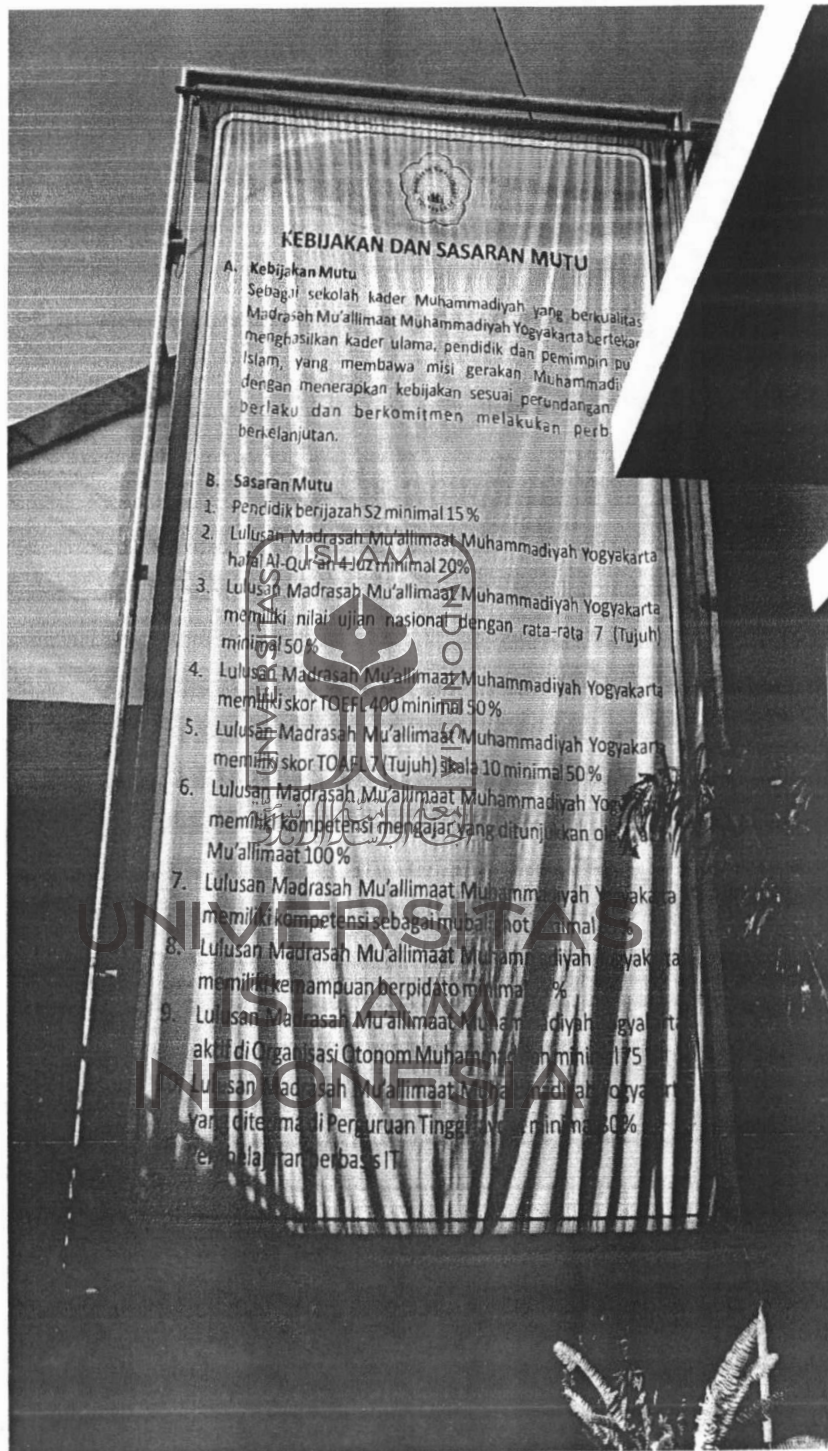 KEBIJAKAN DAN SASARAN MUTU
A. Kebijakan Mutu
Sebagai sekolah kader Muhammadiyah yang berkualitas
Madrasah Mu'allimaat Muhammadiyah Yogyakarta bertekad
menghasilkan kader ulama, pendidik dan pemimpin
Islam, yang membawa misi gerakan
dengan menerapkan kebijakan sesuai perundangan
berlaku dan berkomitmen melakukan
berkelanjutan.
B. Sasaran Mutu
1. Pendidik berijazah S2 minimal 15 %
2. Lulusan Madrasah Mu'allimaat Muhammadiyah Yogyakarta
hafal Al-Qur'an 4 Juz minimal 20%
3. Lulusan Madrasah Mu'allimaat Muhammadiyah Yogyakarta
memiliki nilai ujian nasional dengan rata-rata 7 (Tujuh)
minimal 50 %
4. Lulusan Madrasah Mu'allimaat Muhammadiyah Yogyakarta
memiliki skor TOEFL 400 minimal 50 %
5. Lulusan Madrasah Mu'allimaat Muhammadiyah Yogyakarta
memiliki skor TOAFL 7 (Tujuh) skala 10 minimal 50 %
6. Lulusan Madrasah Mu'allimaat Muhammadiyah
memiliki kompetensi mengajar yang ditunjukkan
Mu'allimaat 100 %
7. Lulusan Madrasah Mu'allimaat Muhammadiyah Yogyakarta
memiliki kompetensi sebagai
8. Lulusan Madrasah Mu'allimaat Muhammadiyah Yogyakarta
memiliki kemampuan berpidato minimal %
9. Lulusan Madrasah Mu'allimaat Muhammadiyah Yogyakarta
aktif di Organisasi Otonom 75
Lulusan Madrasah Mu'allimaat Muhammadiyah Yogyakarta
yang diterima di Perguruan Tinggi minimal
berbasis IT
UNIVERSITAS ISLAM INDONESIA
UNIVERSITAS
ISLAM
INDONESIA